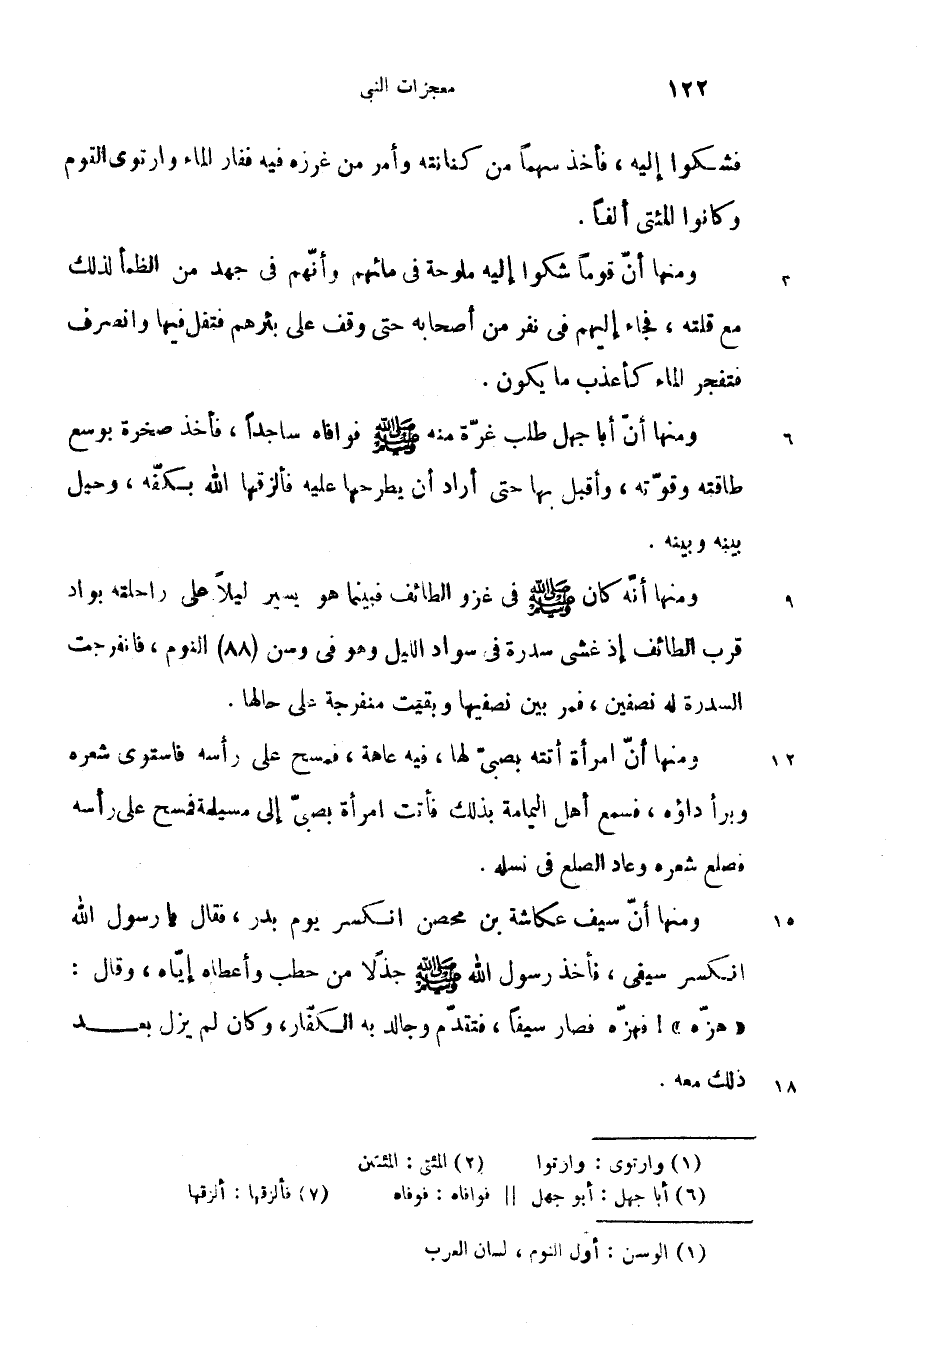 ١٢٢ معجزات النبى
فشكوا إليه ، فأخذ سهماً من كنانته وأمر من غرزه فيه ففار الماء وارتوى القوم
وكانوا المئتى ألفاً .
٣ ومنها أنّ قوماً شكوا إليه ملوحة فى مائهم وأنّهم فى جهد من الظمأ لذلك
مع قلته ، فجاء إليهم فى نفر من أصحابه حتى وقف على بئرهم فتفل فيها وانصرف
فتفجر الماء كأعذب ما يكون .
٦ ومنها أنّ أبا جهل طلب غرّة منه ﷺ فوافاه ساجداً ، فأخذ صخرة بوسع
طاقته وقوّته ، وأقبل بها حتى أراد أن يطرحها عليه فألزقها الله بكفّه ، وحيل
بينه وبينه .
٩ ومنها أنّه كان ﷺ فى غزو الطائف فبينما هو يسير ليلاً على راحلته بواد
قرب الطائف إذ غشى سدرة فى سواد الليل وهو فى وسن (٨٨) النوم ، فانفرجت
السدرة له نصفين ، فمر بين نصفيها وبقيت منفرجة على حالها .
١٢ ومنها أنّ امرأة أتته بصبىّ لها ، فيه عاهة ، فمسح على رأسه فاستوى شعره
وبرأ داؤه ، فسمع أهل اليمامة بذلك فأتت امرأة بصبىّ إلى مسيلمة فمسح على رأسه
فصلع شعره وعاد الصلع فى نسله .
١٥ ومنها أنّ سيف عكاشة بن محصن انكسر يوم بدر ، فقال يا رسول الله
انكسر سيفى ، فأخذ رسول الله ﷺ جذلًا من حطب وأعطاه إيّاه ، وقال :
« هزّه » ! فهزّه فصار سيفاً ، فتقدّم وجالد به الكفّار ، وكان لم يزل بعــد
١٨ ذلك معه .
(١) وارتوى : وارتوا (٢) المئتى : المئتين
(٦) أبا جهل : أبو جهل || فوافاه : فوفاه (٧) فألزقها : ألزقها
(١) الوسن : أول النوم ، لسان العرب